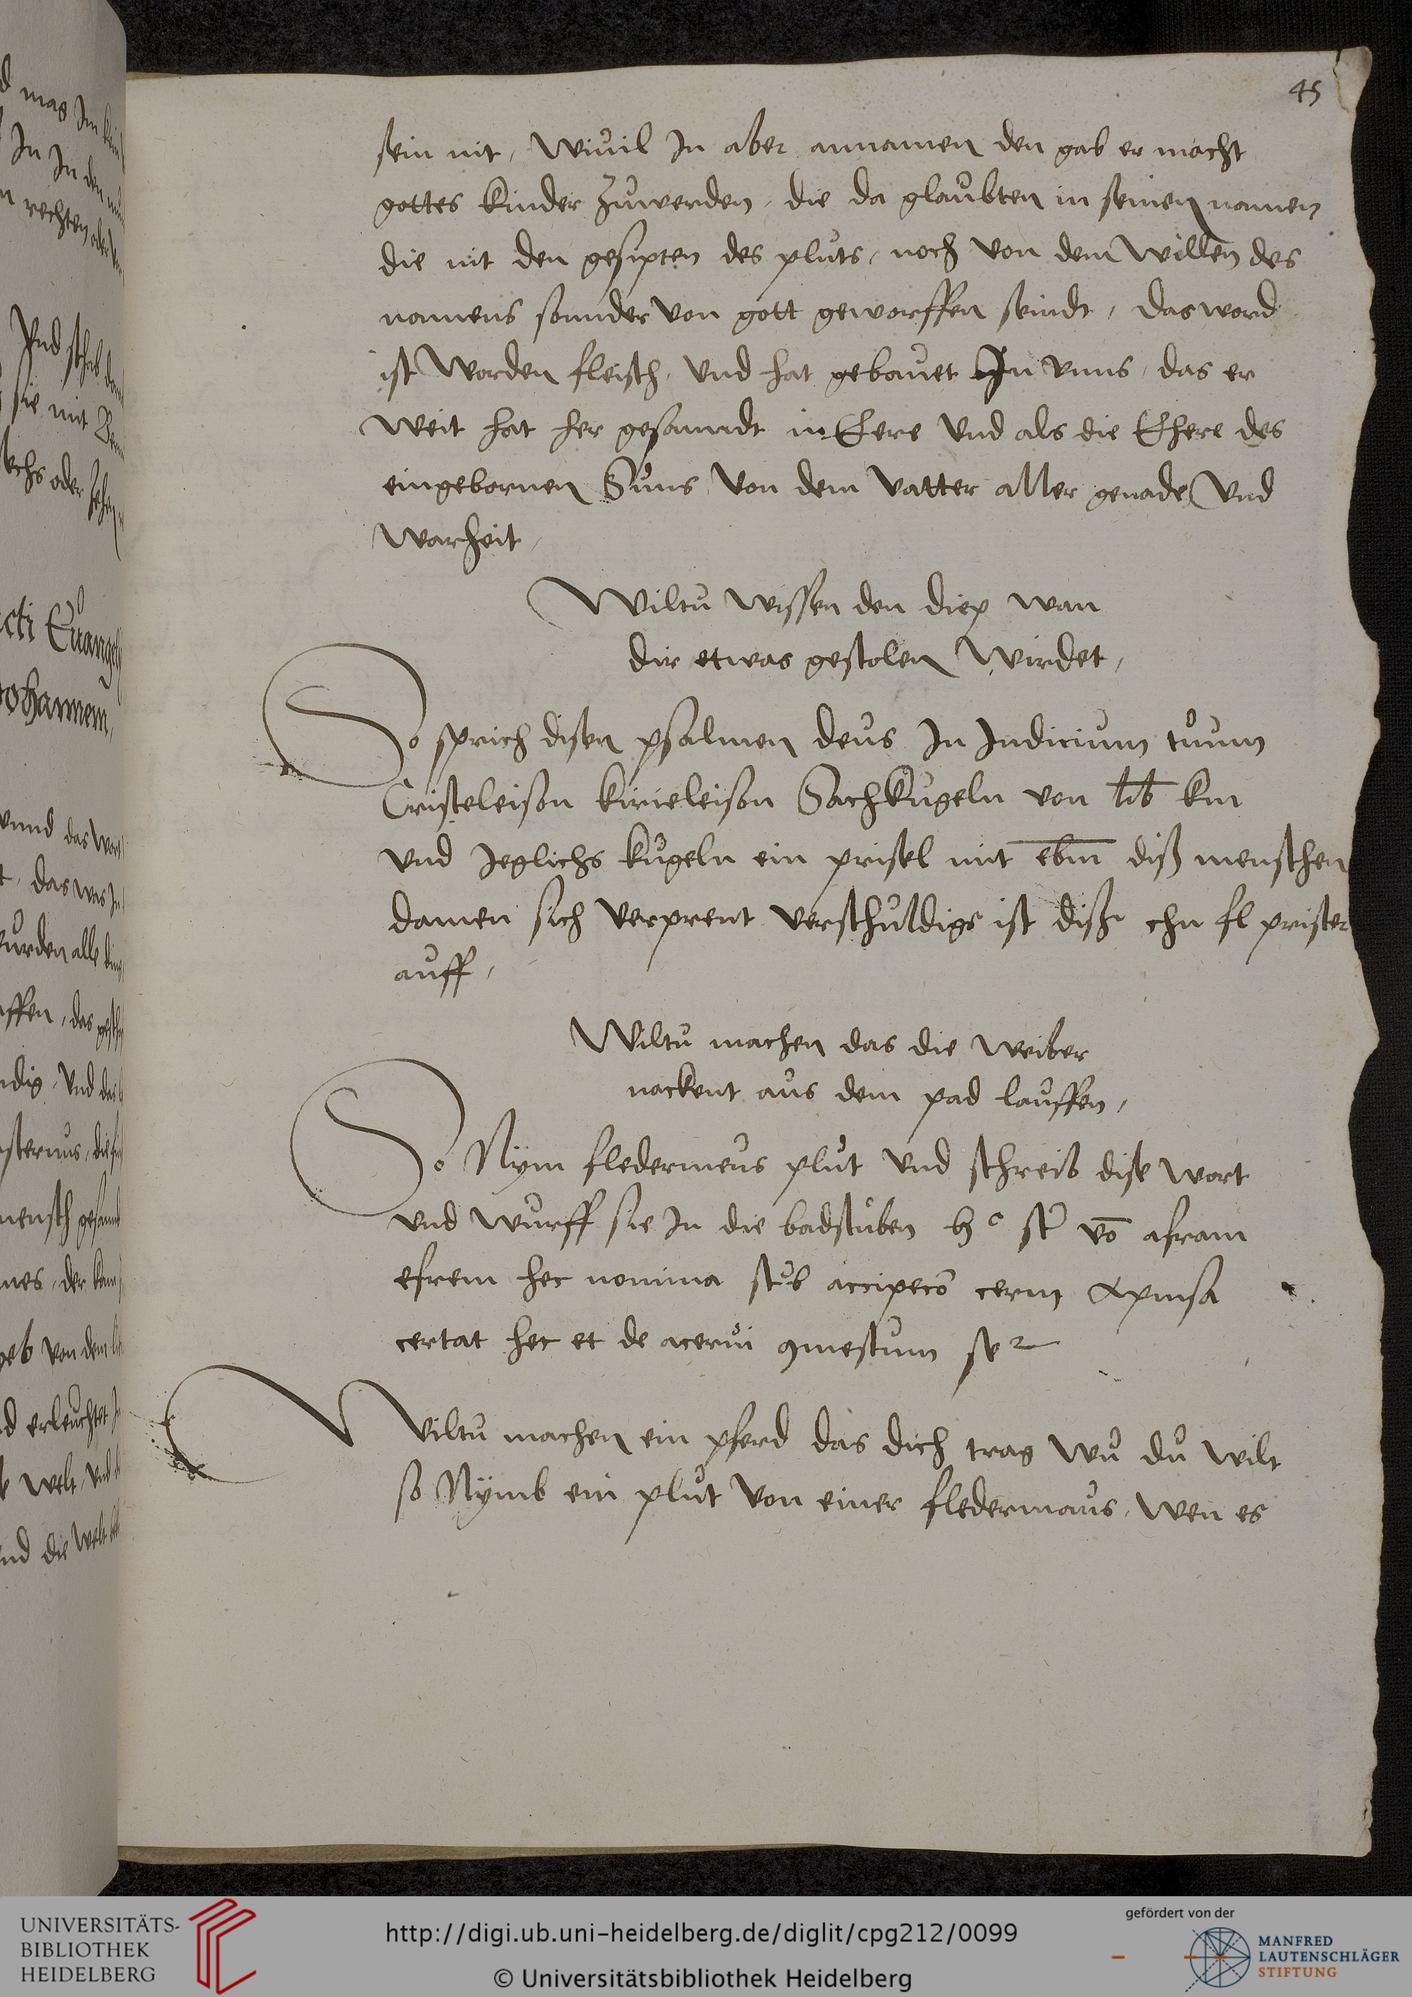 45
sein nit, Wiuil In aber annamen den gab er macht
gottes kinder zuwerden, die da glaubten in seinen namen
die nit den gesipten des pluts, noch von dem Willen des
namens sonnder von gott geworffen seindt, das word
ist Worden fleisch, Vnd hat gebauet In vnns, das er
Weit hat her gesanndt in Eere Vnd als die Ehere des
eingebornen Suns Von dem Vatter aller genade Vnd
Warheit,
Wiltu Wissen den diep wan
dir etwas gestolen Wirdet,
So sprich disen psalmen deus In Iudicium tuum
Cristeleison kirieleison Sachkugeln von
vnd Jeglichs kugeln ein prisel mit ebm diß menschen
damen sich verprent verschuldigs ist diße chn fl prister
auff,
Wiltu machen das die Weiber
nackent aus dem pad lauffen,
So Nym fledermeus plut vnd schreib dise wort
vnd Wurff sie In die badstuben afram
efrem hec nomina
certat hec et de acerui
Wiltu machen ein pferd das dich trag wu du wilt
so Nymb ein plut Von einer fledermaus, Wen es
UNIVERSITÄTS-
BIBLIOTHEK
HEIDELBERG
http://digi.ub.uni-heidelberg.de/diglit/cpg212/0099
© Universitätsbibliothek Heidelberg
gefördert von der
MANFRED
LAUTENSCHLÄGER
STIFTUNG